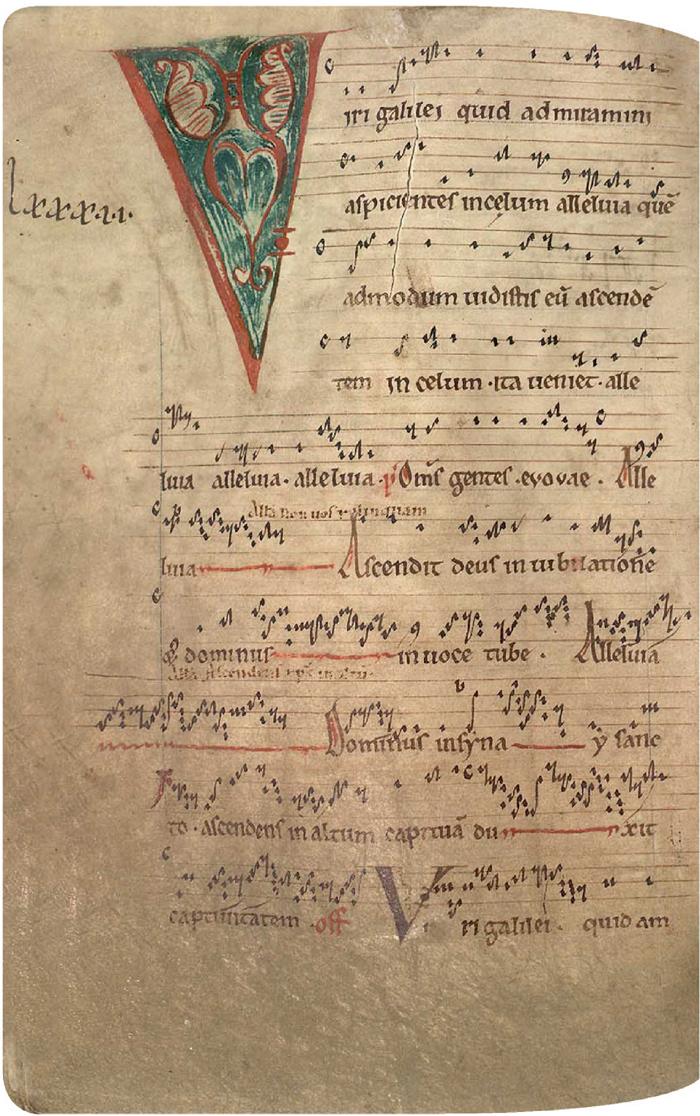 lxxxxii.
Viri galilei quid admiramini
aspicientes incelum alleluia quē
admodum uidistis eū ascendē
tem in celum · ita ueniet · alle
luia alleluia · alleluia · p̄ Om̄s gentes · evovae · Alle
All̄a Non uos relinquam
luia Ascendit deus in iubilatione
& dominus in uoce tube · Alleluia
All̄a Ascendens xp̄s in altu
Dominus insyna y sanc
to · ascendens in altum captiuā du xit
captiuitatem · off Viri galilei · quid am